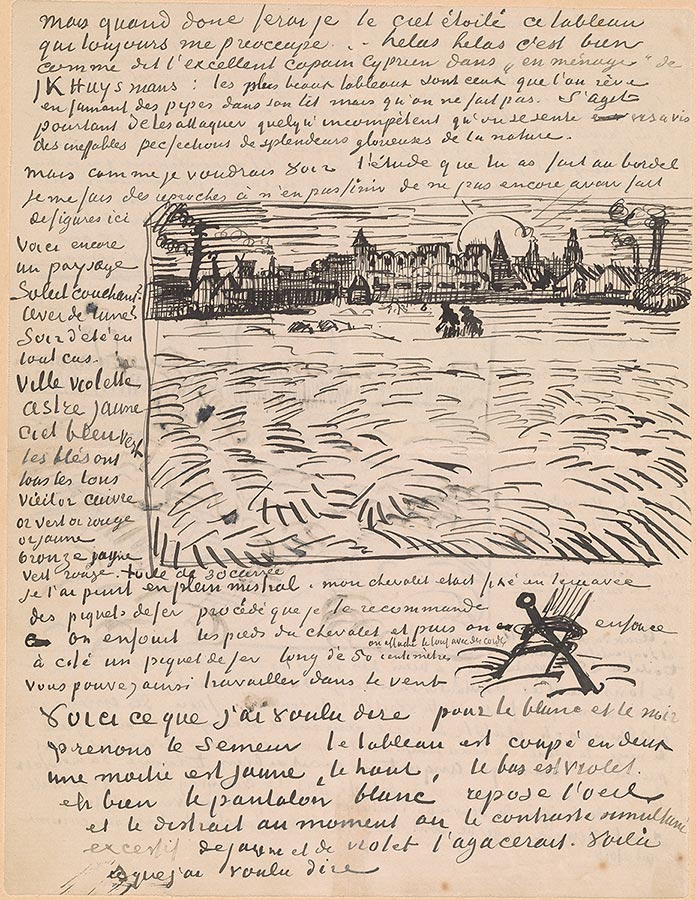 mais quand donc ferai je le ciel étoilé ce tableau
qui toujours me préoccupe. - helas helas c'est bien
comme dit l'excellent copain Cyprien dans "en ménage" de
JK Huysmans: les plus beaux tableaux sont ceux que l'on rêve
en fumant des pipes dans son lit mais qu'on ne fait pas. S'agit
pourtant de les attaquer quelqu'incompétent qu'on se sente vis a vis
des ineffables perfections de splendeurs glorieuses de la nature.
mais comme je voudrais voir l'étude que tu as fait au bordel
je me fais des reproches à n'en pas finir de ne pas encore avoir fait
de figures ici
Voici encore
un paysage
Soleil couchant?
lever de lune?
Soir d'été en
tout cas.
Ville violette
astre jaune
ciel bleu vert
les blés ont
tous les tons
vieil or cuivre
or vert or rouge
or jaune
bronze jaune
vert rouge. toile de 30 carrée
je l'ai peint en plein mistral. mon chevalet etait fixé en terre avec
des piquets de fer procédé que je te recommande
on enfouit les pieds du chevalet et puis on enfonce
à coté un piquet de fer long de 50 centimètres
on attache le tout avec des cordes
vous pouvez ainsi travailler dans le vent
Voici ce que j'ai voulu dire pour le blanc et le noir
prenons le Semeur le tableau est coupé en deux
une moitié est jaune, le haut, le bas est violet.
eh bien le pantalon blanc repose l'oeil
et le distrait au moment ou le contraste simultané
excessif de jaune et de violet l'agacerait. Voilà
ce que j'ai voulu dire